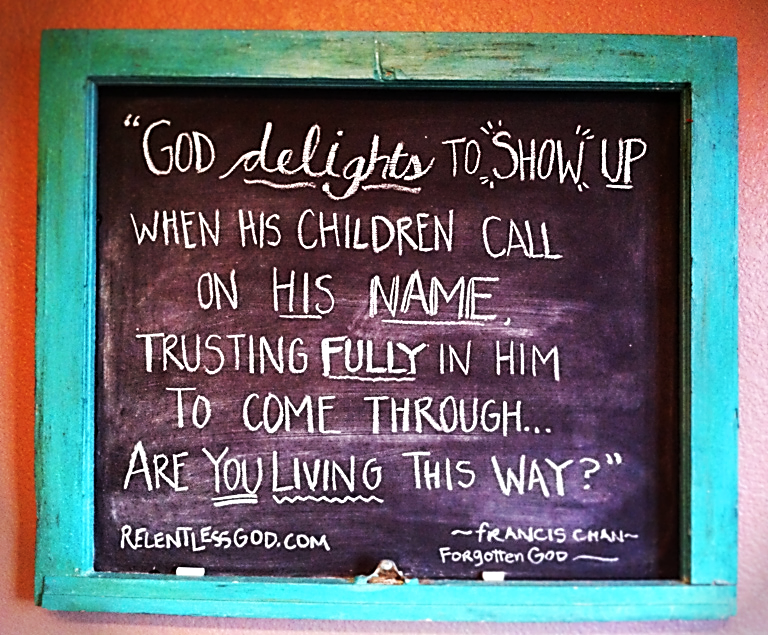 “GOD delights TO SHOW UP
WHEN HIS CHILDREN CALL
ON HIS NAME,
TRUSTING FULLY IN HIM
TO COME THROUGH...
ARE YOU LIVING THIS WAY?”
RELENTLESSGOD.COM
~FRANCIS CHAN~
FORGOTTEN GOD —